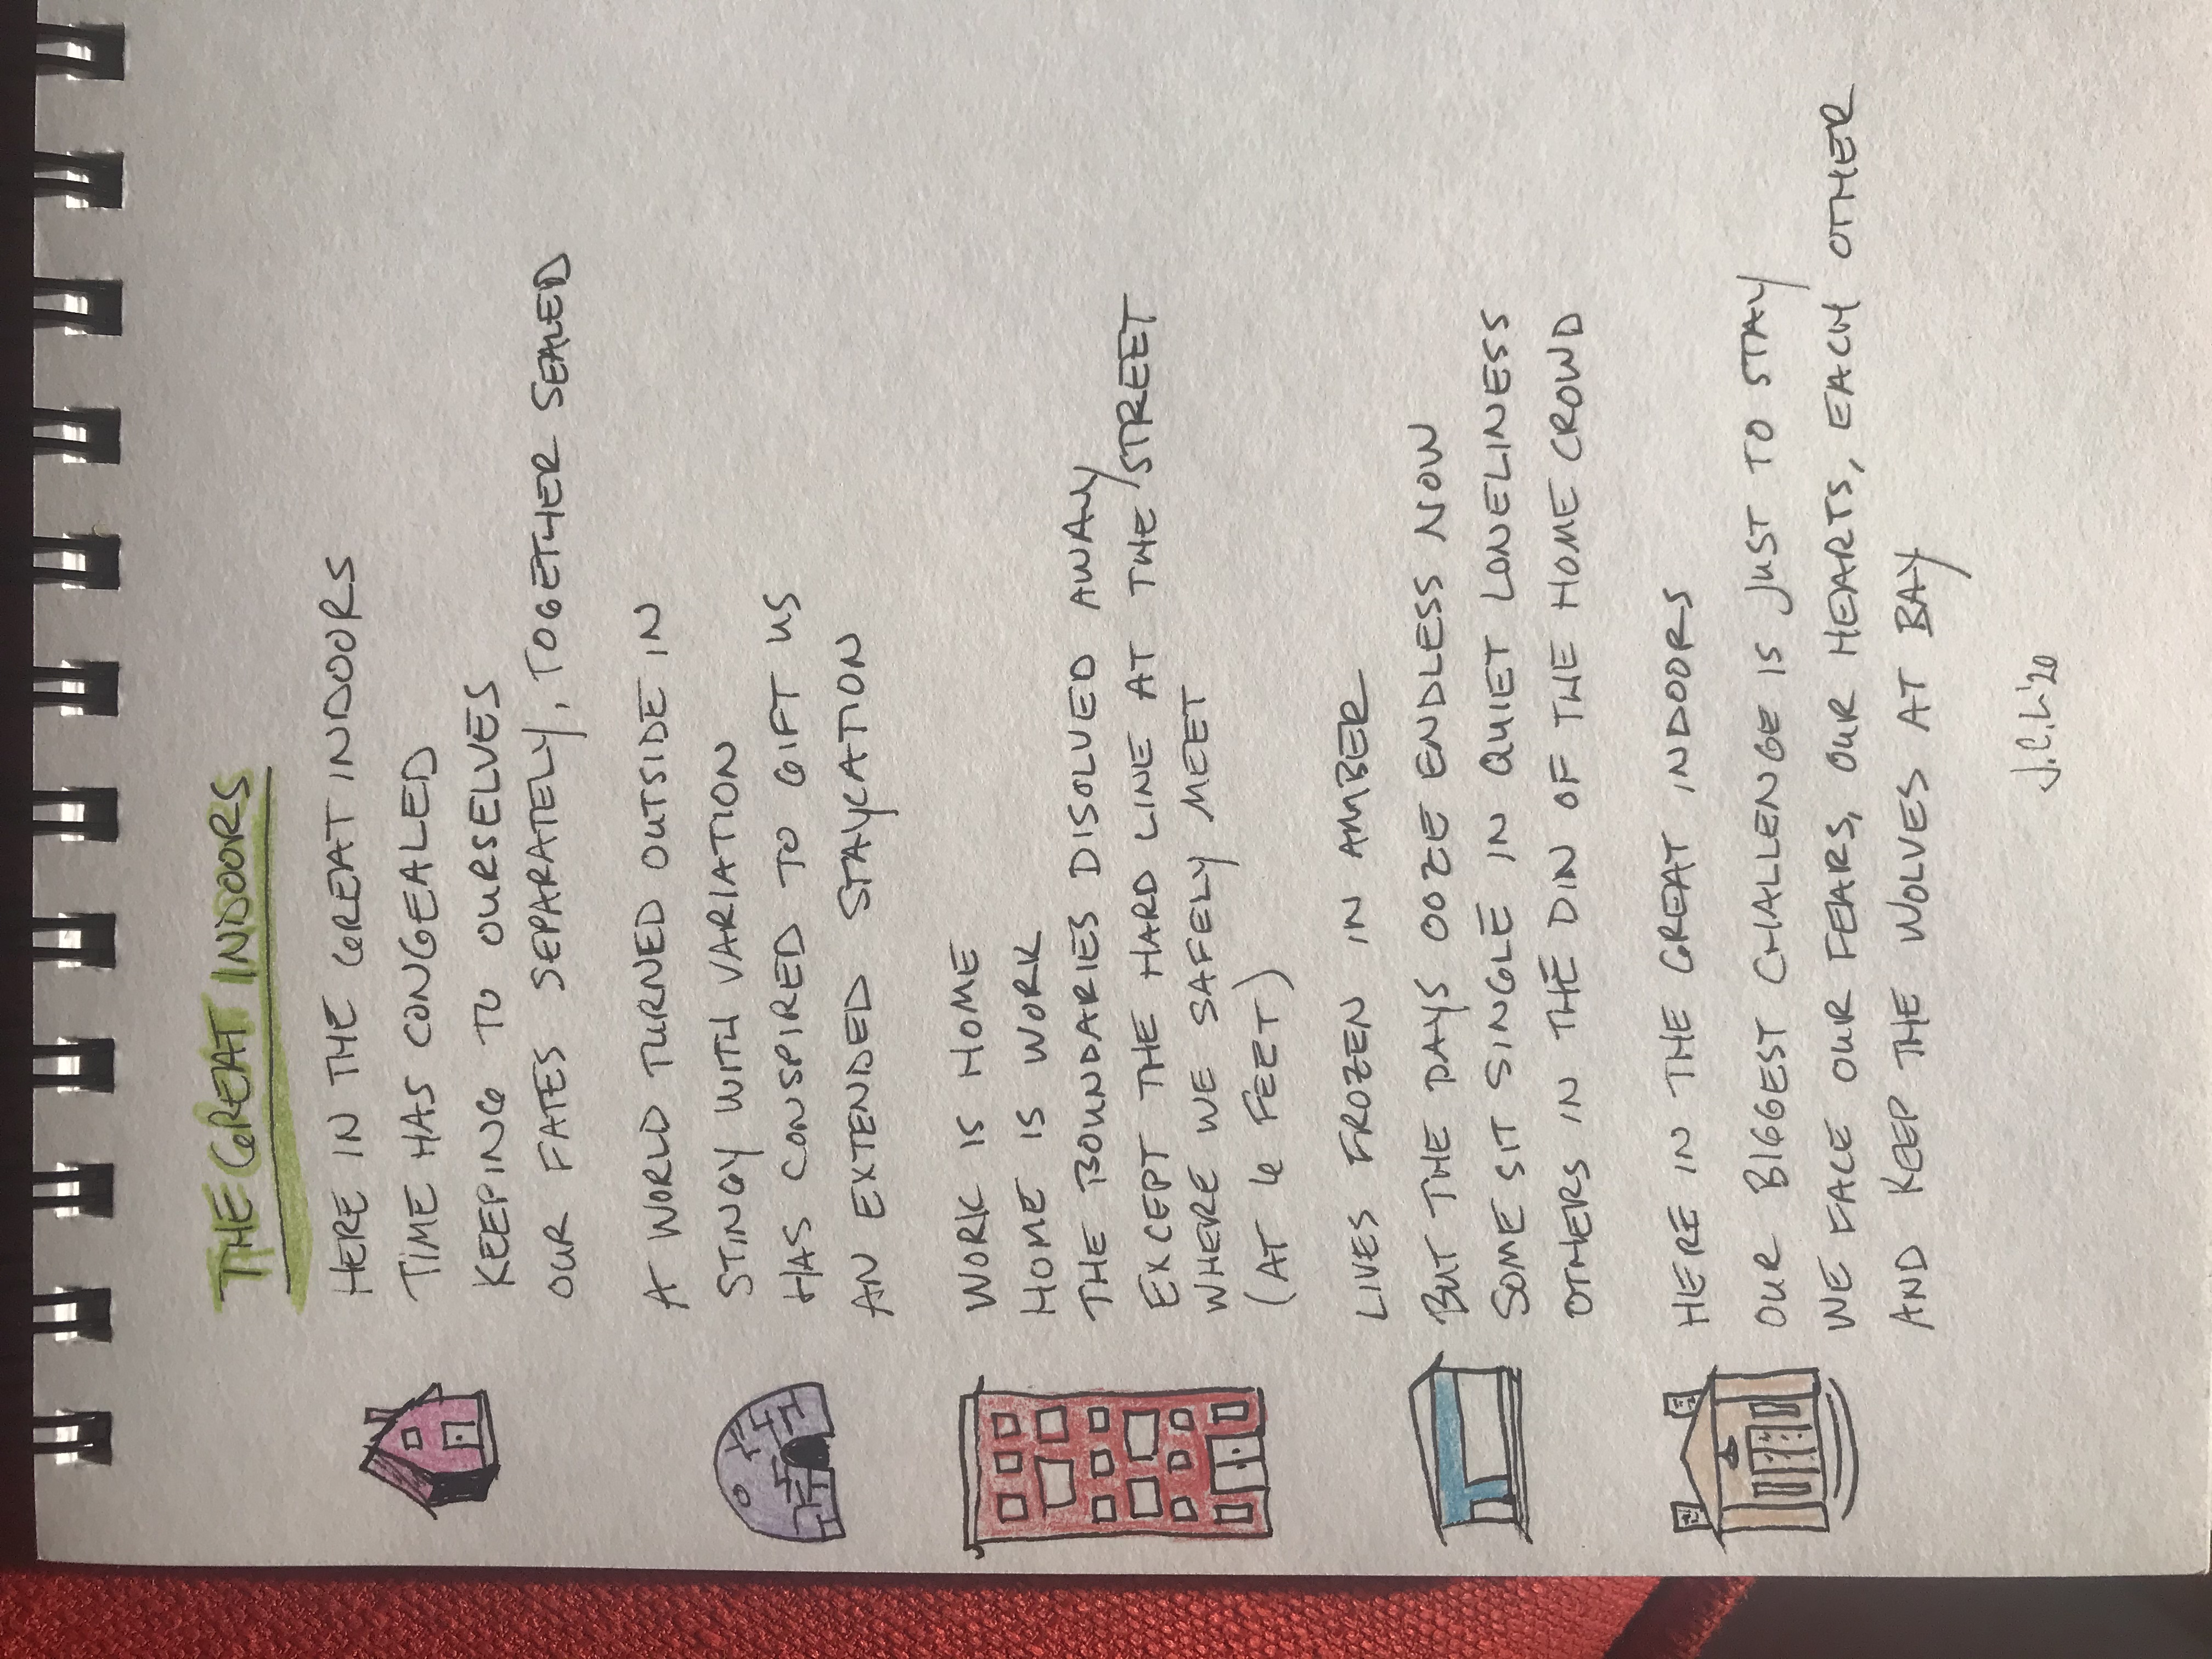 THE GREAT INDOORS
HERE IN THE GREAT INDOORS
TIME HAS CONGEALED
KEEPING TO OURSELVES
OUR FATES SEPARATELY, TOGETHER SEALED
A WORLD TURNED OUTSIDE IN
STINGY WITH VARIATION
HAS CONSPIRED TO GIFT US
AN EXTENDED STAYCATION
WORK IS HOME
HOME IS WORK
THE BOUNDARIES DISOLVED AWAY
EXCEPT THE HARD LINE AT THE STREET
WHERE WE SAFELY MEET
(AT 6 FEET)
LIVES FROZEN IN AMBER
BUT THE DAYS OOZE ENDLESS NOW
SOME SIT SINGLE IN QUIET LONELINESS
OTHERS IN THE DIN OF THE HOME CROWD
HERE IN THE GREAT INDOORS
OUR BIGGEST CHALLENGE IS JUST TO STAY
WE FACE OUR FEARS, OUR HEARTS, EACH OTHER
AND KEEP THE WOLVES AT BAY
J.C.L '20